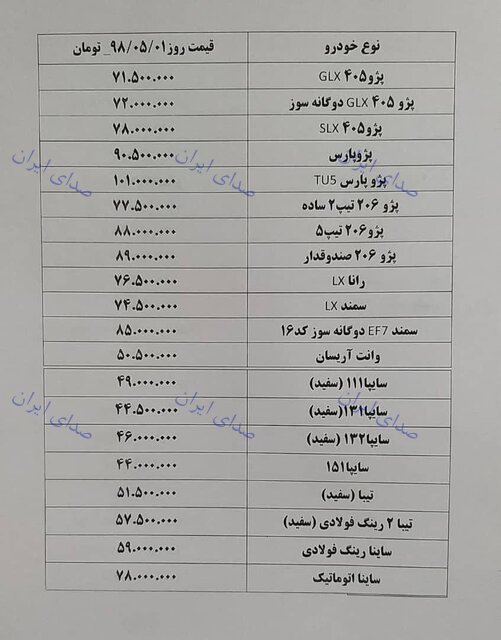 نوع خودرو قیمت روز ۹۸/۰۵/۰۱_ تومان
پژو۴۰۵ GLX ۷۱.۵۰۰.۰۰۰
پژو ۴۰۵ GLX دوگانه سوز ۷۲.۰۰۰.۰۰۰
پژو۴۰۵ SLX ۷۸.۰۰۰.۰۰۰
پژوپارس ۹۰.۵۰۰.۰۰۰
پژو پارس TU5 ۱۰۱.۰۰۰.۰۰۰
پژو ۲۰۶ تیپ۲ ساده ۷۷.۵۰۰.۰۰۰
پژو ۲۰۶ تیپ۵ ۸۸.۰۰۰.۰۰۰
پژو ۲۰۶ صندوقدار ۸۹.۰۰۰.۰۰۰
رانا LX ۷۶.۵۰۰.۰۰۰
سمند LX ۷۴.۵۰۰.۰۰۰
سمند EF7 دوگانه سوز کد۱۶ ۸۵.۰۰۰.۰۰۰
وانت آریسان ۵۰.۵۰۰.۰۰۰
سایپا۱۱۱ (سفید) ۴۹.۰۰۰.۰۰۰
سایپا۱۳۱(سفید) ۴۴.۵۰۰.۰۰۰
سایپا۱۳۲ (سفید) ۴۶.۰۰۰.۰۰۰
سایپا۱۵۱ ۴۴.۰۰۰.۰۰۰
تیبا (سفید) ۵۱.۵۰۰.۰۰۰
تیبا ۲ رینگ فولادی (سفید) ۵۷.۵۰۰.۰۰۰
ساینا رینگ فولادی ۵۹.۰۰۰.۰۰۰
ساینا اتوماتیک ۷۸.۰۰۰.۰۰۰
صدای ایران
صدای ایران
صدای ایران
صدای ایران
صدای ایران
صدای ایران